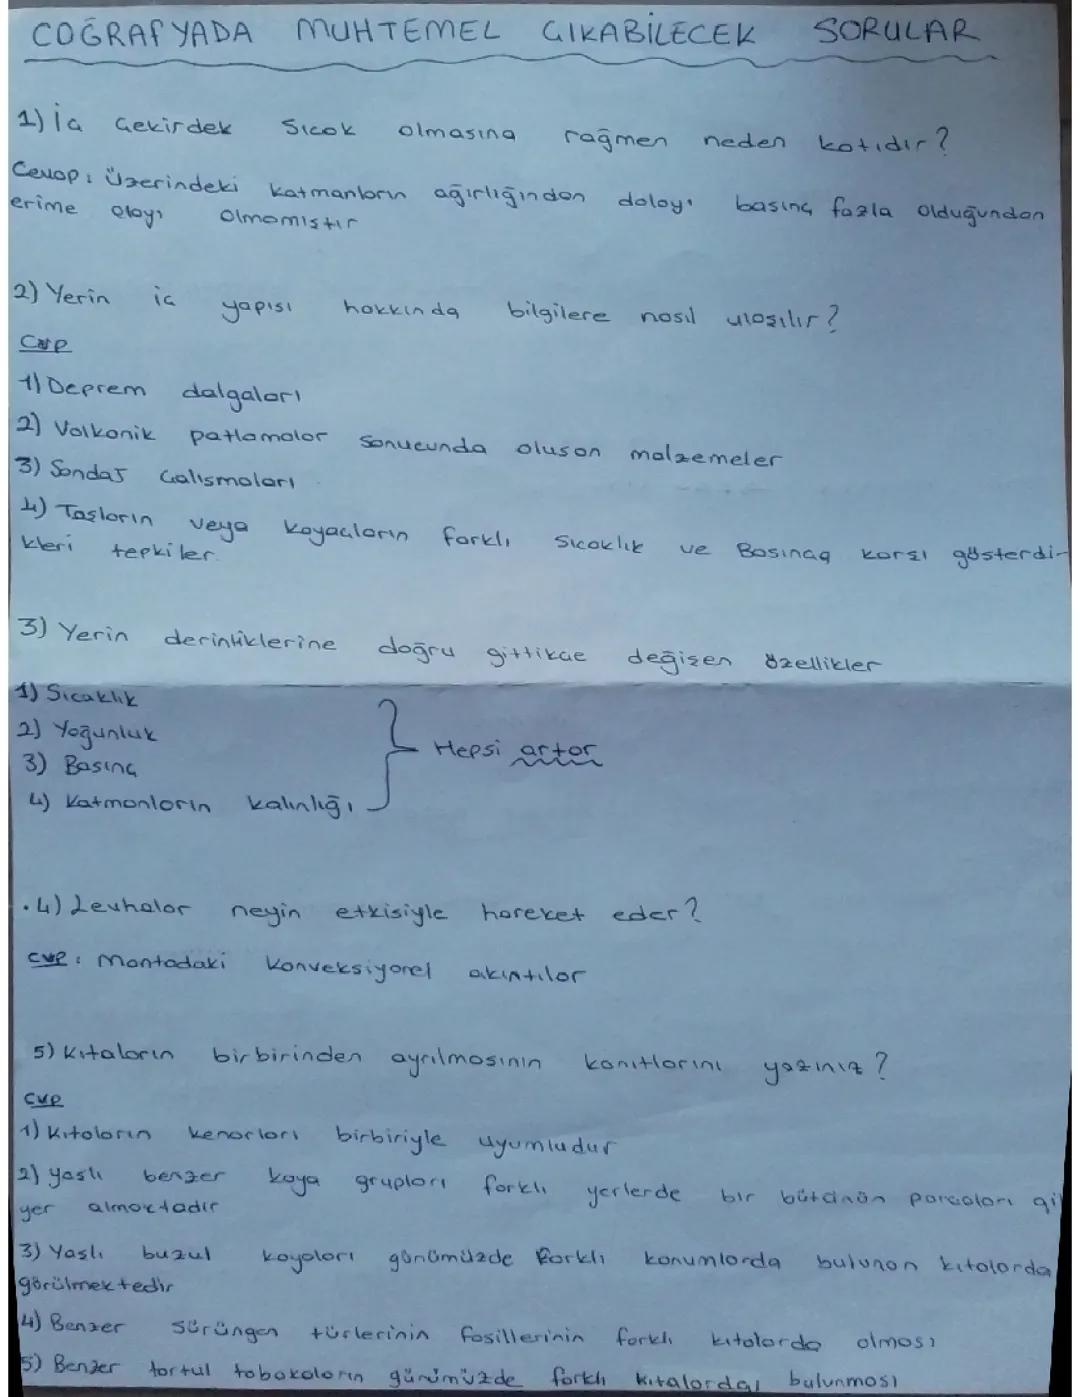 COĞRAFYADA MUHTEMEL ÇIKABİLECEK SORULAR
1) İç Çekirdek Sıcak olmasına rağmen neden katıdır?
Cevap: Üzerindeki katmanların ağırlığından dolayı basınç fazla olduğundan
erime olayı olmamıştır
2) Yerin iç yapısı hakkında bilgilere nasıl ulaşılır?
Cvp
1) Deprem dalgaları
2) Volkanik patlamalar sonucunda oluson malzemeler
3) Sondaj Çalışmaları
4) Taşların veya kayaçların farklı sıcaklık ve Basınaç karşı gösterdi-
kleri tepkiler.
3) Yerin derinliklerine doğru gittikçe değişen özellikler
1) Sıcaklık
2) Yoğunluk
3) Basınç
4) Katmanların kalınlığı
Hepsi artar
4) Levhalar neyin etkisiyle hareket eder?
cvp: Mantadaki konveksiyonel akıntılar
5) Kıtaların birbirinden ayrılmasının kanıtlarını yazınız?
cvp
1) Kıtaların kenarları birbiriyle uyumludur
2) yaşlı benzer kaya grupları farklı yerlerde bir bütünün parçaları gi
yer almaktadır
3) Yaşlı buzul kayaları günümüzde farklı konumlarda bulunan kıtalarda
görülmektedir
4) Benzer sürüngen türlerinin fosillerinin farklı kıtalarda olması
5) Benzer tortul tabakaların günümüzde farklı kıtalardaı bulunması